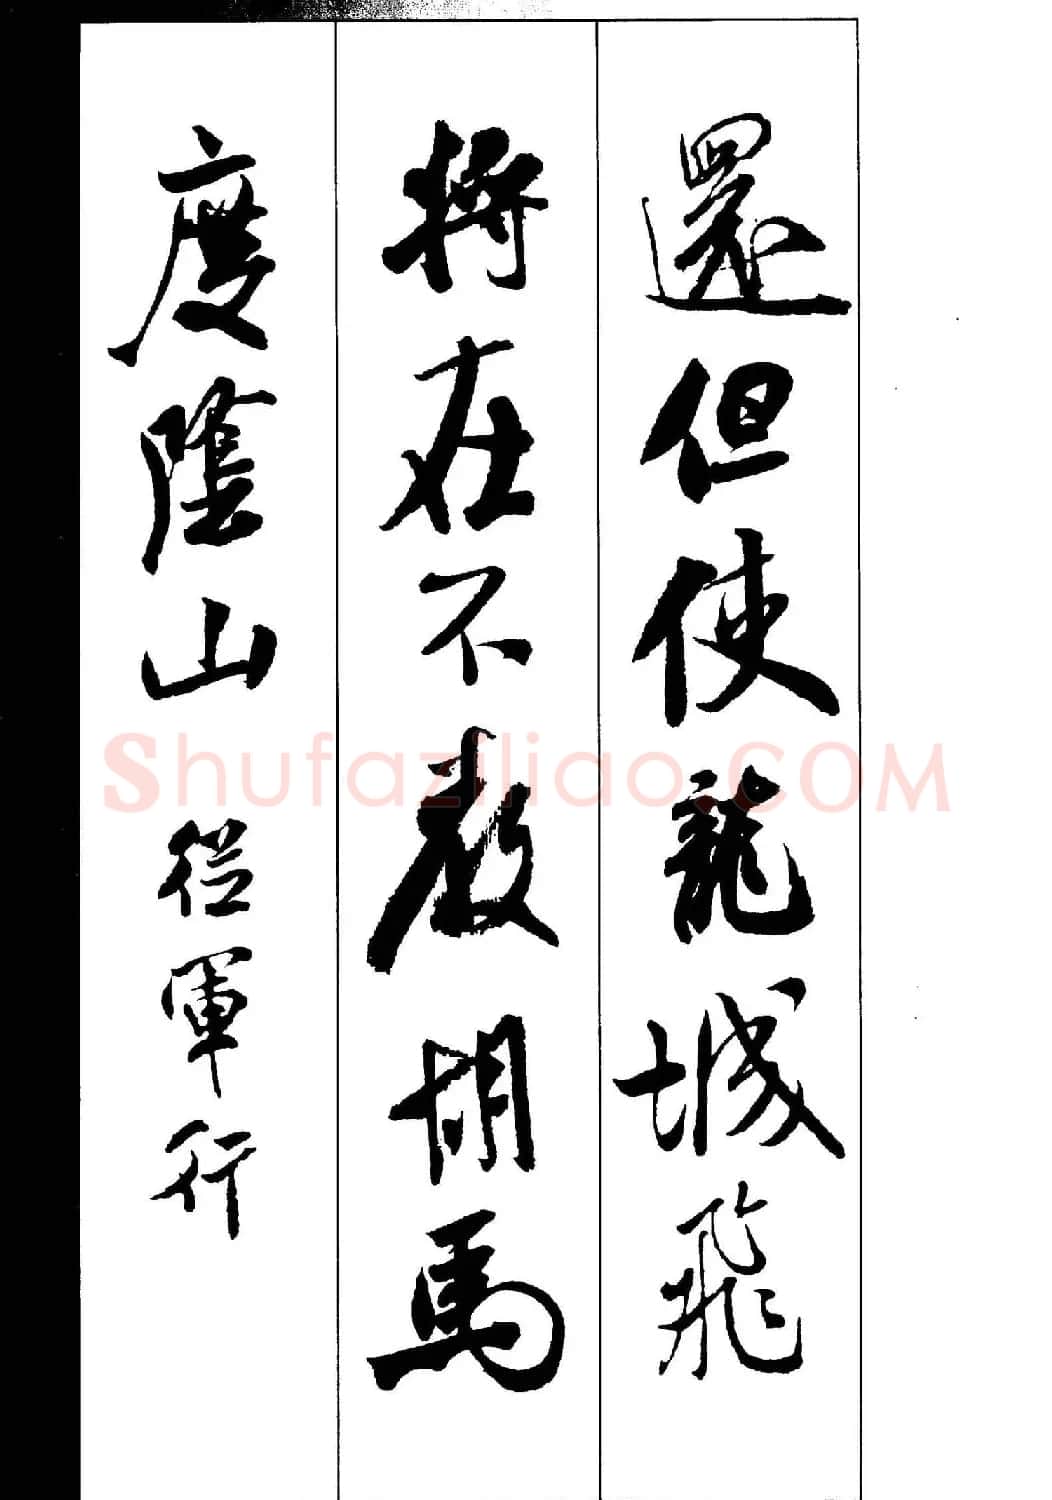 還但使龍城飛
將在不教胡馬
度陰山 從軍行
Shufaziliao.COM